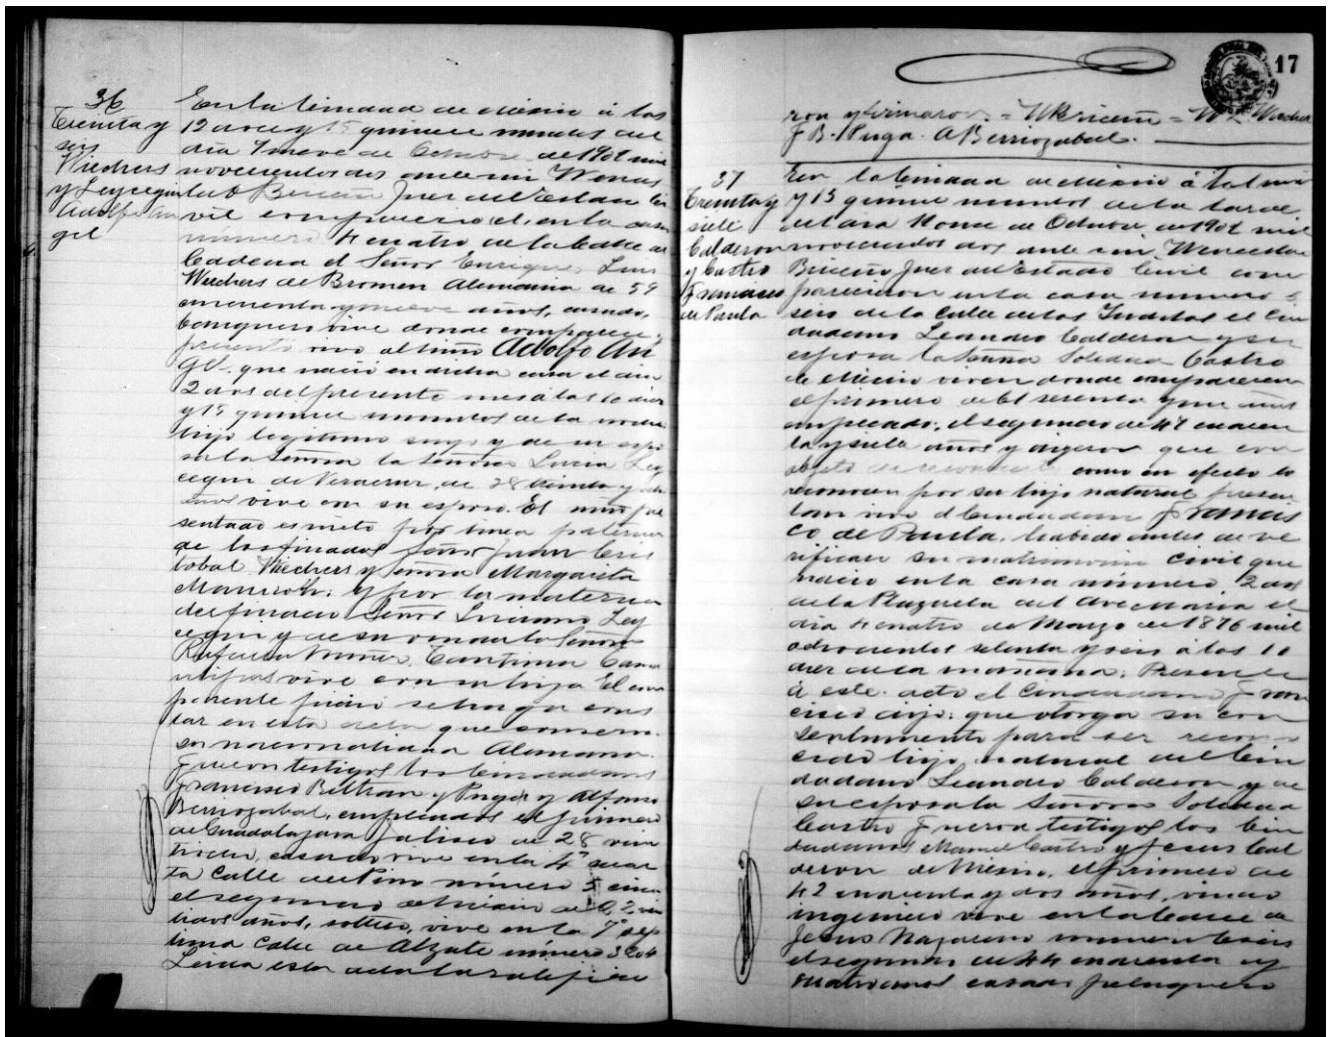 36
Treinta y
seis
Wiechers
y Leycegui
Adolfo An
gel
En la Ciudad de México á las
12 doce y 15 quince minutos del
día 9 nueve de Octubre de 1902 mil
novecientos dos ante mi Wences
lao Briceño Juez del Estado Ci
vil comparece en la casa
número 4 cuatro de la Calle de
Cadena el Señor Enrique Luis
Wiechers de Bremen Alemania de 59
cincuenta y nueve años, casado,
banquero vive donde comparece,
presentó vivo al niño Adolfo An
gel que nació en dicha casa el día
2 dos del presente mes á las 10 diez
y 15 quince minutos de la noche
hijo legítimo suyo y de su espo
sa la Señora la Señora Lucia Ley
cegui de Veracruz, de 28 veinte y ocho
años vive con su esposo. El niño pre
sentado es nieto por línea paterna
de los finados Señor Juan Cris
tobal Wiechers y Señora Margarita
y por la materna
del finado Señor Luciano Ley
cegui y de su viuda la Señora
Rafaela
vive con su hija El com
parente pidió se haga cons
tar en esta acta que conserva
su nacionalidad Alemana.
Fueron testigos los Ciudadanos
Francisco Beltran y Puga y Alfonso
Berriozabal, empleados el primero
de Guadalajara Jalisco de 28 vein
tiocho, casado vive en la 4ª cuar
ta Calle del Pino número 5 cinco
el segundo de México de 22 vein
tidos años, soltero, vive en la 7ª sép
tima Calle de Alzate número 3
Leida esta acta la ratifica
17
ron y firmaron. = W Briceño = Wiechers
F B. Puga. A Berriozabal.
37
Treinta y
siete
Calderon
y Castro
Francisco
de Paula
En la Ciudad de México á la 1 una
y 15 quince minutos de la tarde
del día 11 once de Octubre de 1902 mil
novecientos dos ante mi Wenceslao
Briceño Juez del Estado Civil com
parecieron en la casa número 6
seis de la Calle de las Inditas el Ciu
dadano Leandro Calderon y su
esposa la Señora Soledad Castro
de México viven donde comparecen
el primero de 61 sesenta y un años
empleado, el segundo de 47 cuaren
ta y siete años y dijeron que con
objeto de reconocer como en efecto lo
reconocen por su hijo natural presen
tan vivo al Ciudadano Francis
co de Paula, habido antes de ve
rificar su matrimonio Civil que
nació en la casa número 2 dos
de la Plazuela del Ave Maria el
día 4 cuatro de Marzo de 1876 mil
ochocientos setenta y seis á las 10
diez de la mañana. Presente
á este acto el Ciudadano Fran
cisco dijo: que otorga su con
sentimiento para ser recono
cido hijo natural del Ciu
dadano Leandro Calderon y de
su esposa la Señora Soledad
Castro Fueron testigos los Ciu
dadanos Manuel Castro y Jesus Cal
deron de México, el primero de
42 cuarenta y dos años, viudo
ingeniero vive en la Calle de
Jesus Nazareno número
el segundo de 44 cuarenta y
cuatro años casado peluquero